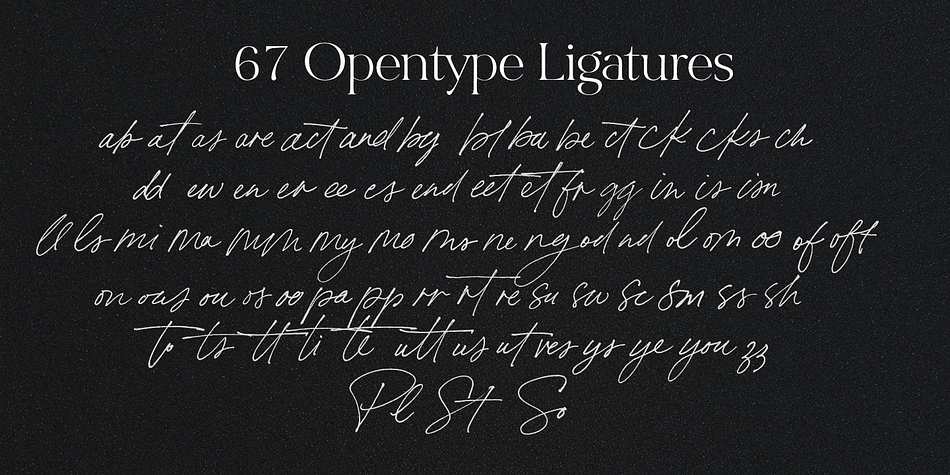 67 Opentype Ligatures
ab at as are act and by bl ba be ct ck cks ch
dd ew en er ee es end eet et fr gg in is ion
ll ls mi ma mm my mo ms ne ng od nd ol om oo of oft
on ous ou os oo pa pp rr rt re su sw sc sm ss sh
to ts tt ti te utt us ut ves ys ye you zz
Pl St So